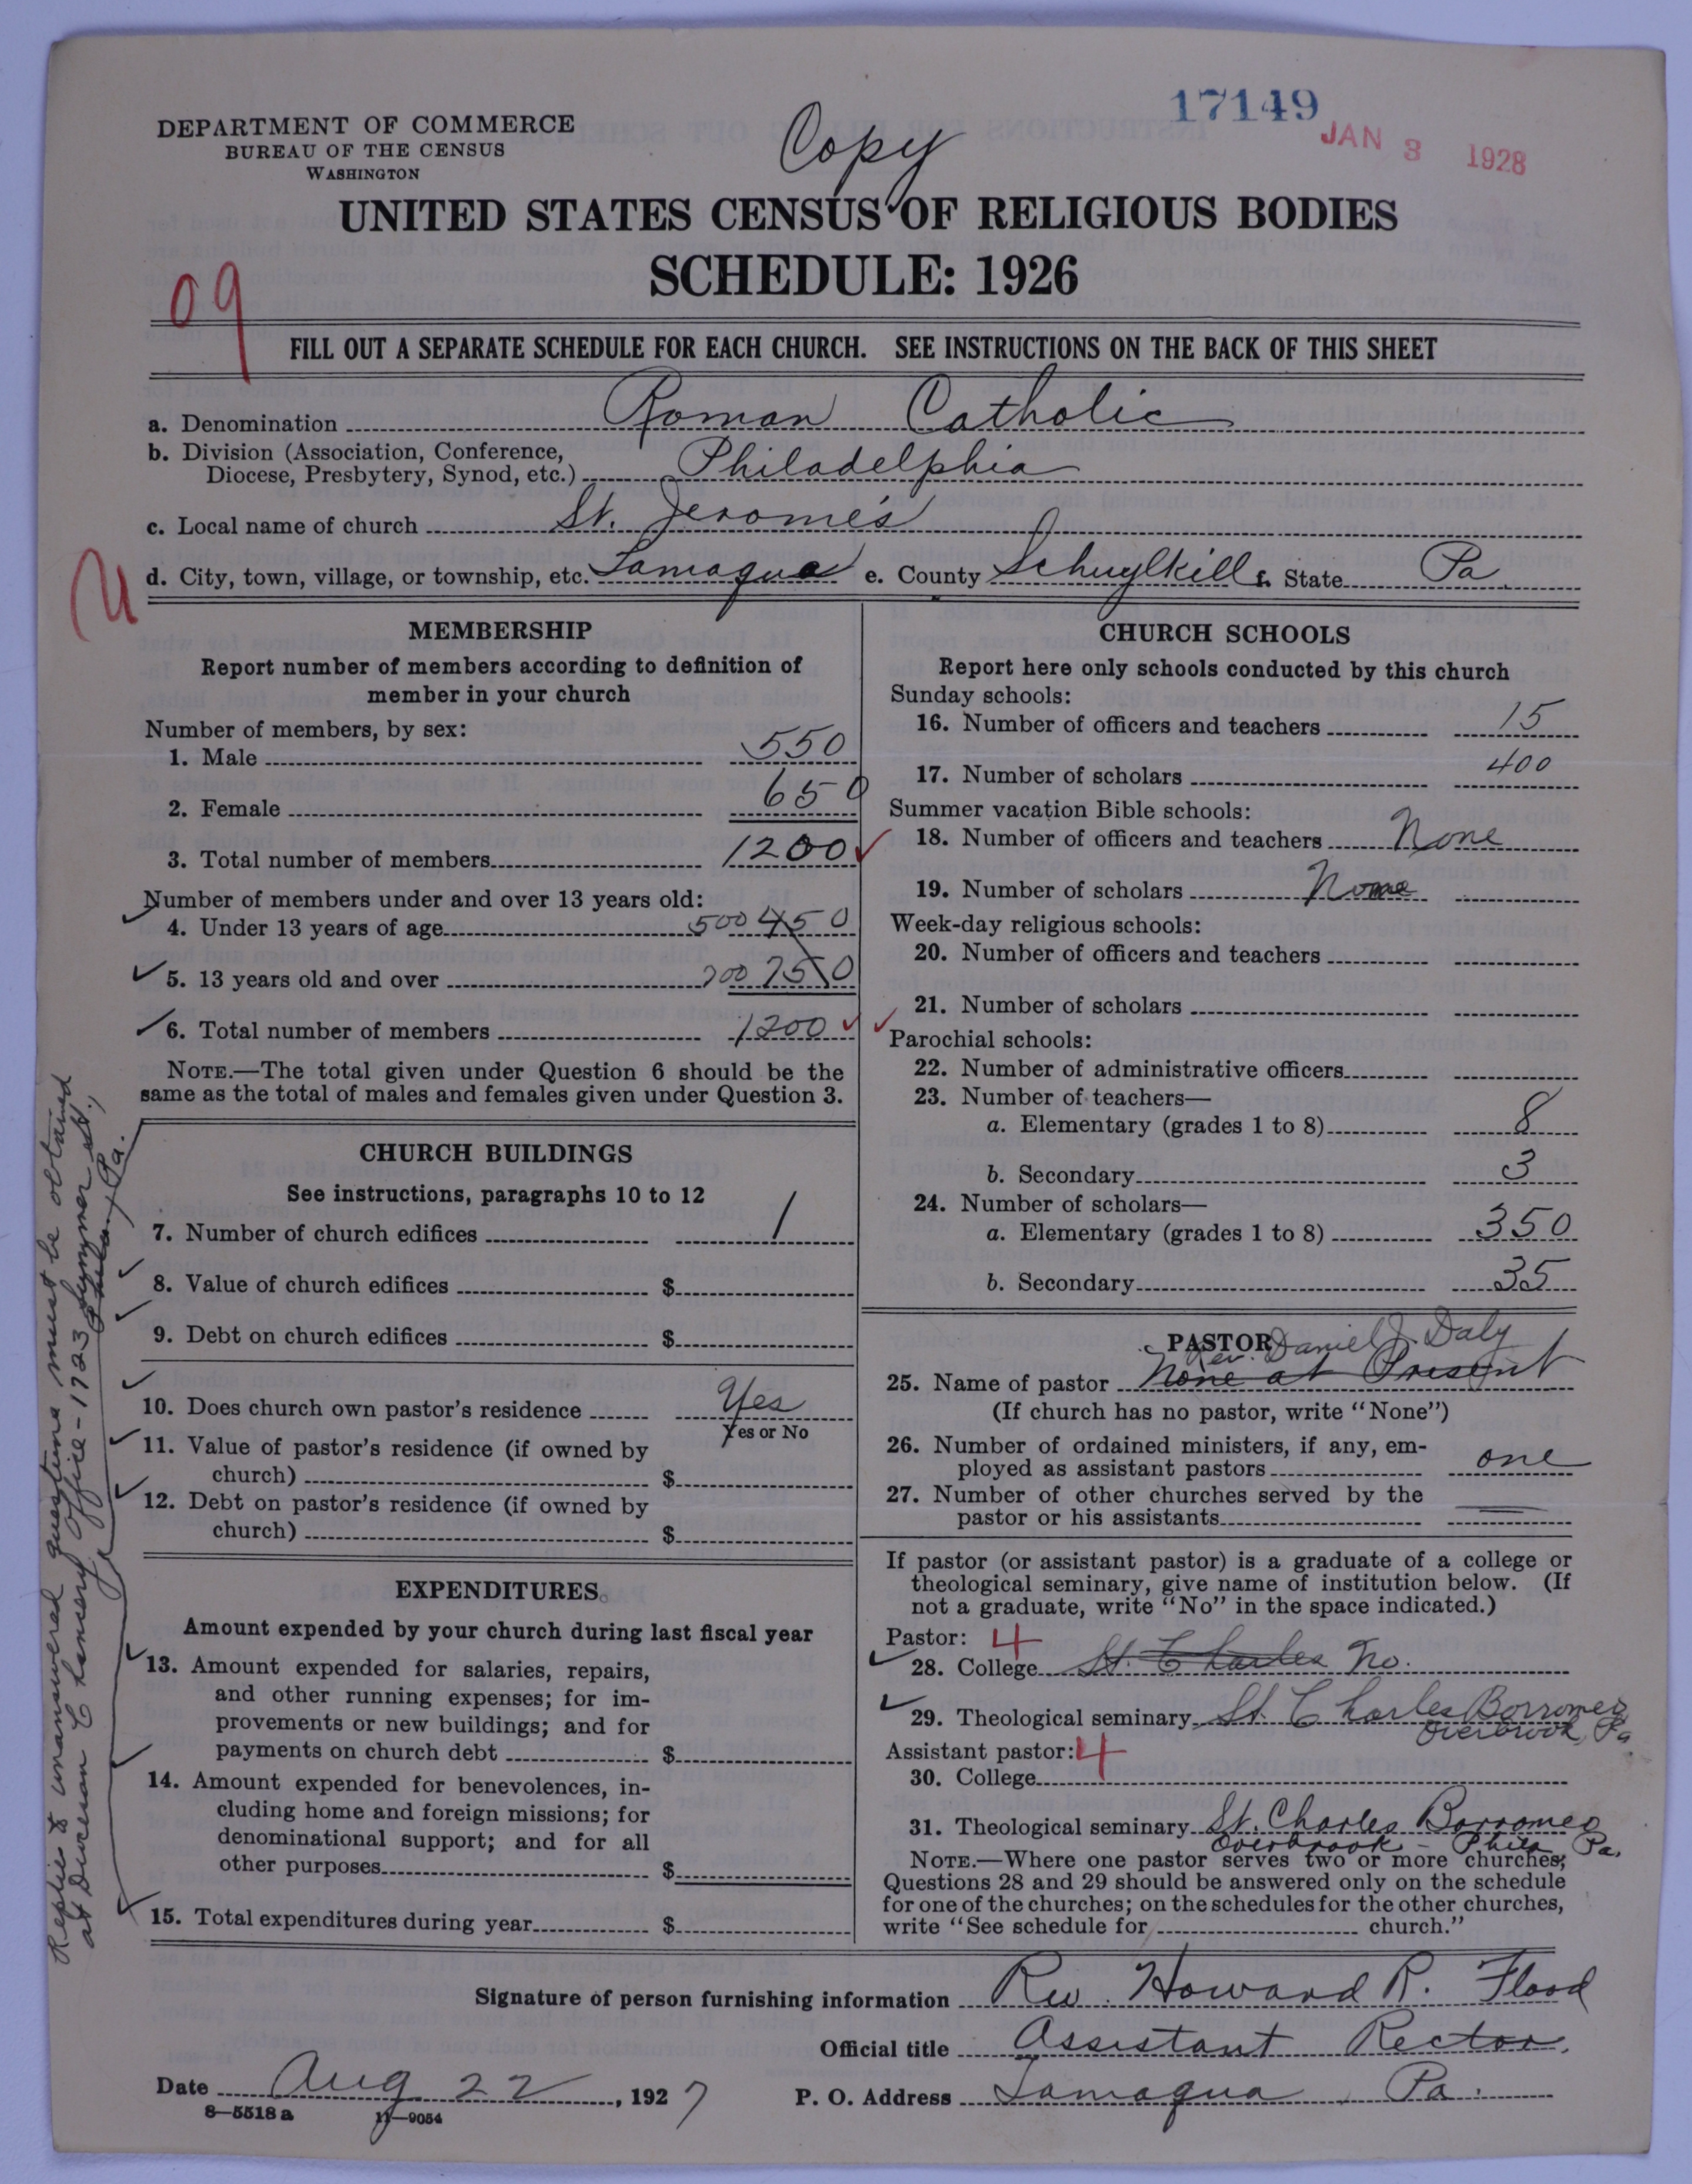 17149
JAN 3 1928
DEPARTMENT OF COMMERCE
BUREAU OF THE CENSUS
WASHINGTON
Copy
UNITED STATES CENSUS OF RELIGIOUS BODIES
SCHEDULE: 1926
09
FILL OUT A SEPARATE SCHEDULE FOR EACH CHURCH. SEE INSTRUCTIONS ON THE BACK OF THIS SHEET
a. Denomination Roman Catholic
b. Division (Association, Conference,
Diocese, Presbytery, Synod, etc.) Philadelphia
c. Local name of church St. Jerome's
d. City, town, village, or township, etc. Tamaqua e. County Schuylkill f. State Pa.
MEMBERSHIP
Report number of members according to definition of
member in your church
Number of members, by sex:
1. Male 550
2. Female 650
3. Total number of members 1200
Number of members under and over 13 years old:
4. Under 13 years of age 500 450
5. 13 years old and over 700 750
6. Total number of members 1200
NOTE.—The total given under Question 6 should be the
same as the total of males and females given under Question 3.
CHURCH BUILDINGS
See instructions, paragraphs 10 to 12
7. Number of church edifices 1
8. Value of church edifices $
9. Debt on church edifices $
10. Does church own pastor's residence Yes
Yes or No
11. Value of pastor's residence (if owned by
church) $
12. Debt on pastor's residence (if owned by
church) $
EXPENDITURES
Amount expended by your church during last fiscal year
13. Amount expended for salaries, repairs,
and other running expenses; for im-
provements or new buildings; and for
payments on church debt $
14. Amount expended for benevolences, in-
cluding home and foreign missions; for
denominational support; and for all
other purposes $
15. Total expenditures during year $
Replies to unanswered questions must be obtained
at Diocesan Chancery Office - 1723 Summer St.,
Phila., Pa.
CHURCH SCHOOLS
Report here only schools conducted by this church
Sunday schools:
16. Number of officers and teachers 15
17. Number of scholars 400
Summer vacation Bible schools:
18. Number of officers and teachers None
19. Number of scholars None
Week-day religious schools:
20. Number of officers and teachers
21. Number of scholars
Parochial schools:
22. Number of administrative officers
23. Number of teachers—
a. Elementary (grades 1 to 8) 8
b. Secondary 3
24. Number of scholars—
a. Elementary (grades 1 to 8) 350
b. Secondary 35
PASTOR
Rev. Daniel J. Daly
25. Name of pastor None at Present
(If church has no pastor, write "None")
26. Number of ordained ministers, if any, em-
ployed as assistant pastors one
27. Number of other churches served by the
pastor or his assistants
If pastor (or assistant pastor) is a graduate of a college or
theological seminary, give name of institution below. (If
not a graduate, write "No" in the space indicated.)
Pastor: 4
28. College St. Charles No.
29. Theological seminary St. Charles Borromeo
Overbrook, Pa.
Assistant pastor: 4
30. College
31. Theological seminary St. Charles Borromeo
Overbrook - Phila Pa.
NOTE.—Where one pastor serves two or more churches,
Questions 28 and 29 should be answered only on the schedule
for one of the churches; on the schedules for the other churches,
write "See schedule for church."
Signature of person furnishing information Rev. Howard R. Flood
Official title Assistant Rector.
Date Aug 22, 1927 P. O. Address Tamaqua, Pa.
8—5518a 11—9054